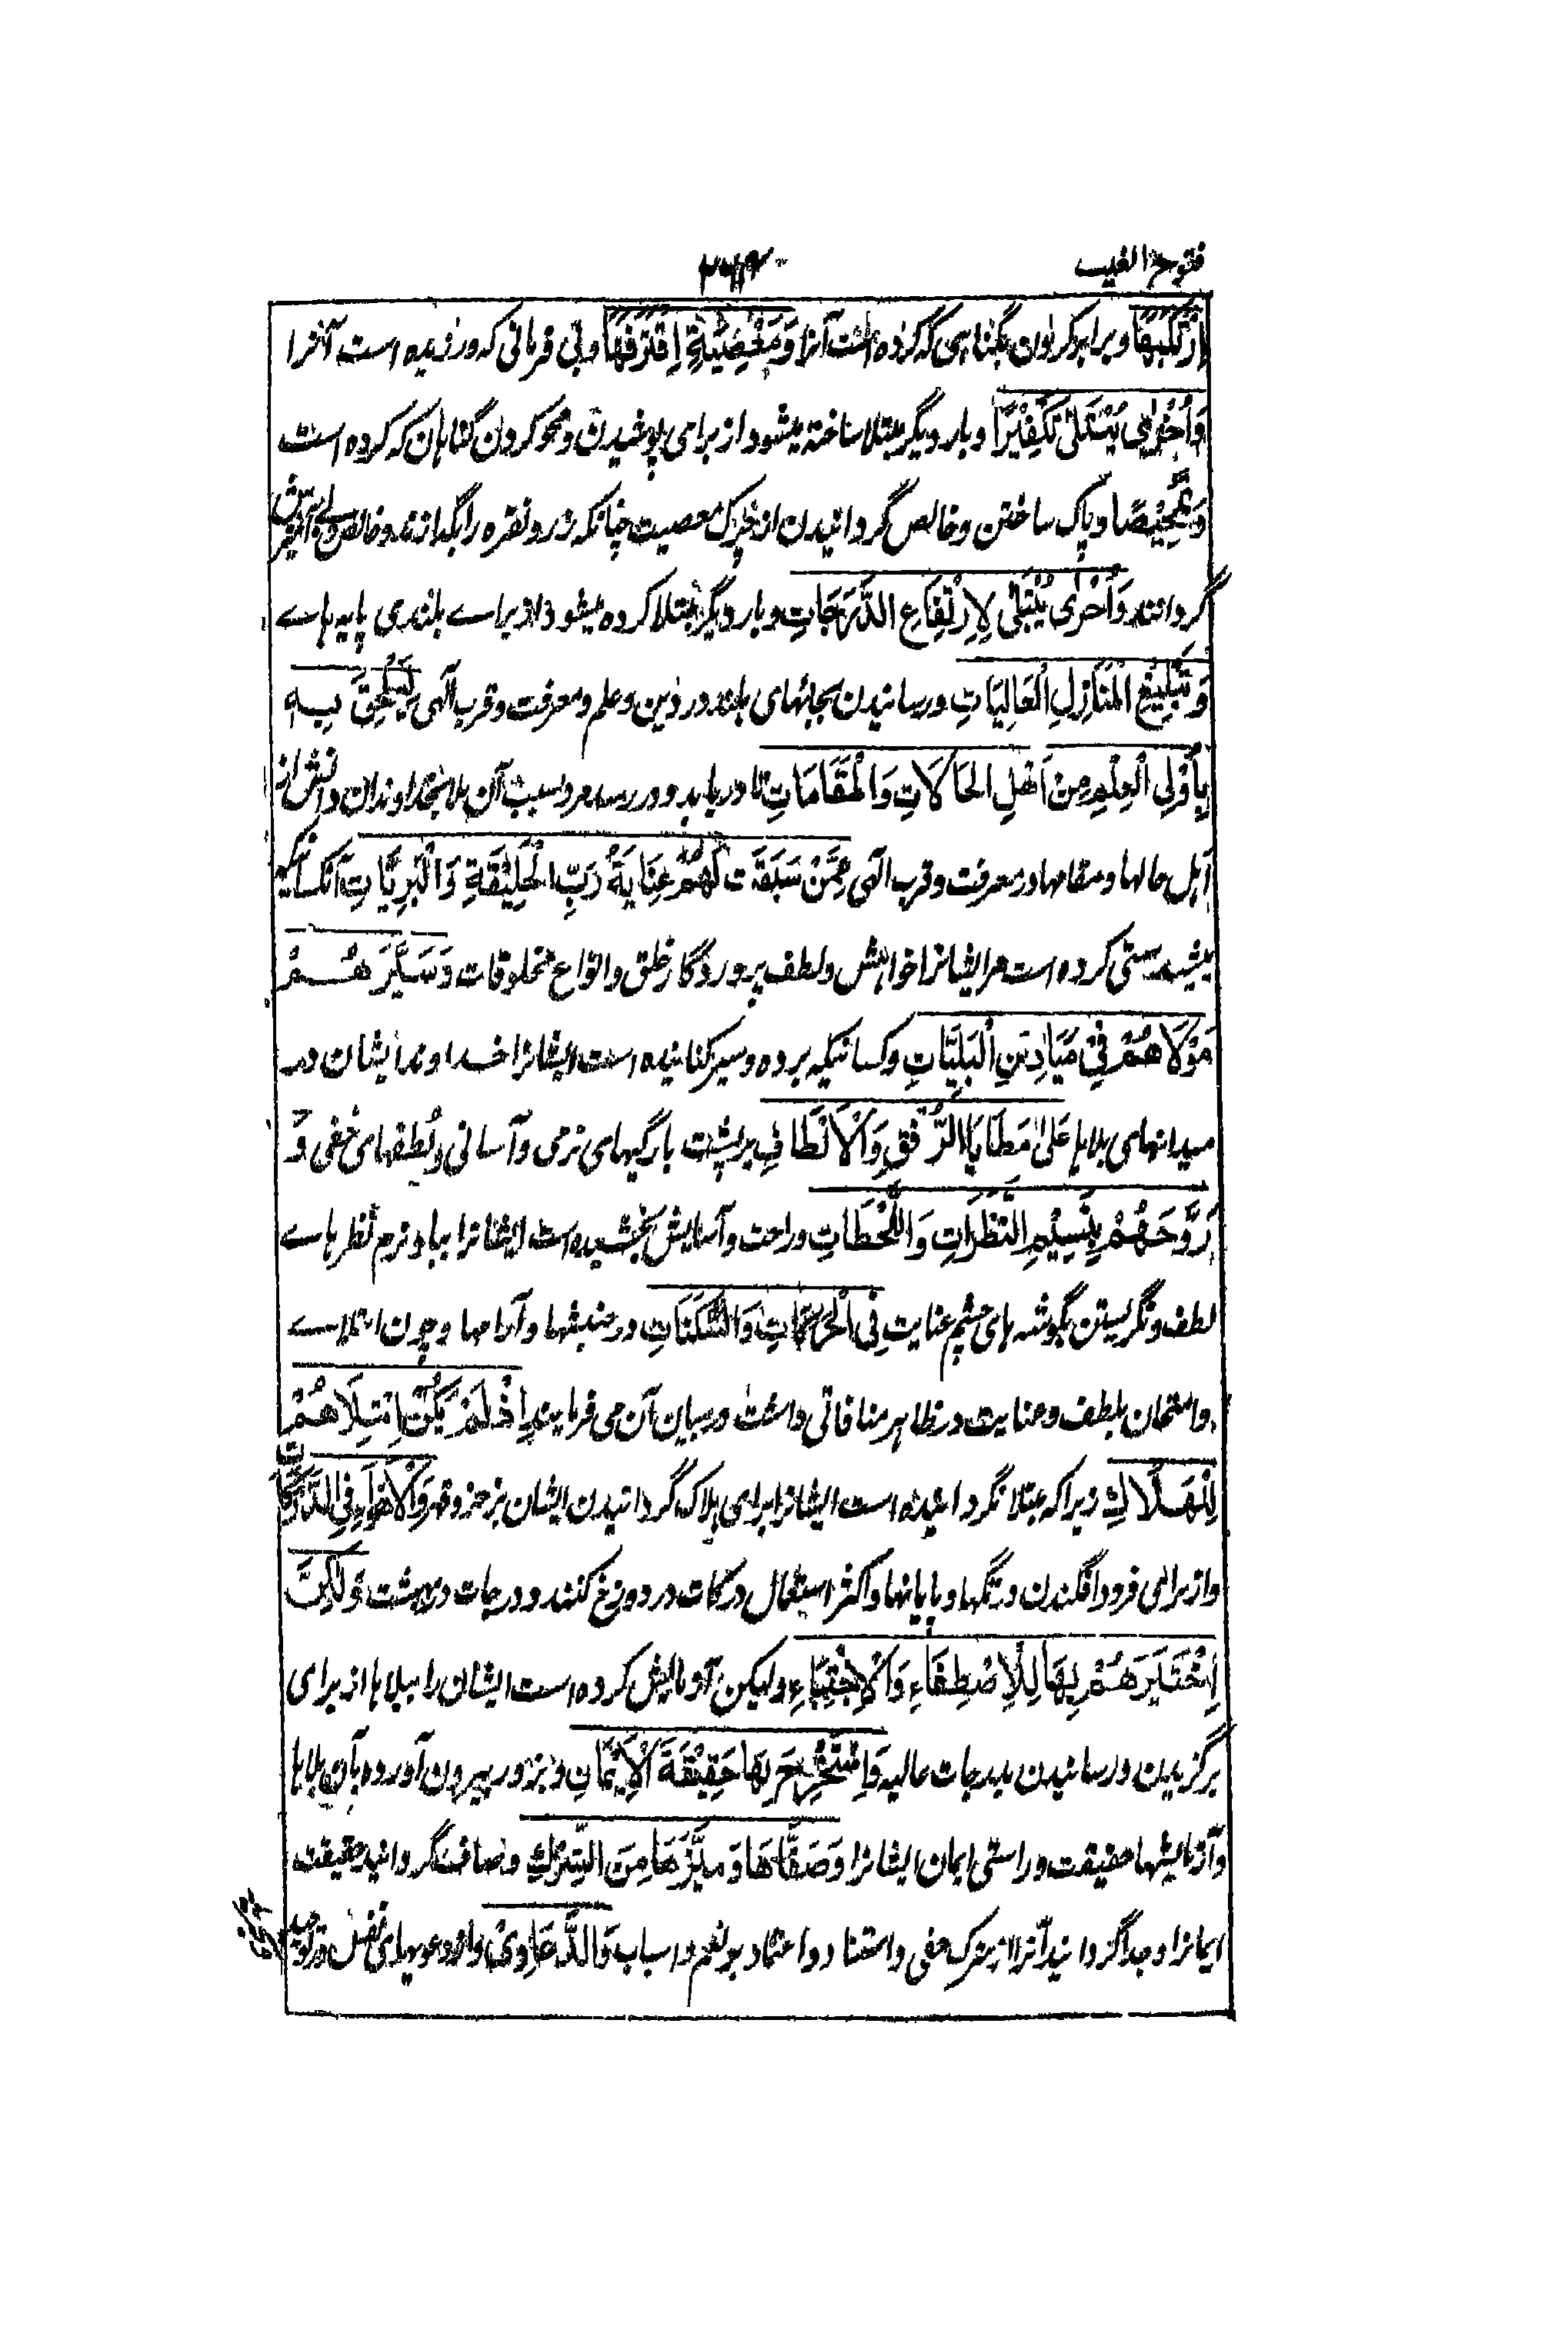 فتوح الغیب
اِرْتَكَبَهَا و برابر کردن بگناہی که کرده است آنرا وَمَعْصِيَةٍ اِقْتَرَفَهَا و بی فرمانی که ورزیده است آنرا
وَاُخْرٰى يُبْتَلٰى تَكْفِيْرًا و بار دیگر مبتلا ساخته میشود از برای پوشیدن و محو کردن گناہان که کرده است
وَتَمْحِيْصًا و پاک ساختن و خالص گردانیدن از چرک معصیت چنانکه زر و نقره را بگدازند و خالص
گردانند وَاُخْرٰى يُبْتَلٰى لِاِرْتِفَاعِ الدَّرَجَاتِ و بار دیگر مبتلا کرده میشود از براے بلندی پایه ہاے
وَتَبْلِيْغِ الْمَنَازِلِ الْعَالِيَاتِ و رسانیدن بجائهای بلند در دین و علم و معرفت و قرب الٰہی لِيَلْحَقَ بِهٖ
بِاُوْلِى الْعِلْمِ مِنْ اَهْلِ الْحَالَاتِ وَالْمَقَامَاتِ تا دریابد و در رسد مرد بسبب آن بلا بخداوندان دانش از
اہل حالها و مقامها در معرفت و قرب الٰہی مِمَّنْ سَبَقَتْ لَهُمْ عِنَايَةُ رَبِّ الْخَلِيْقَةِ وَالْبَرِيَّاتِ آنکسانیکه
پیشدستی کرده است مر ایشانرا خواہش و لطف پروردگار خلق و انواع مخلوقات وَسَيَّرَهُمْ
مَوْلَاهُمْ فِيْ مَيَادِيْنِ الْبَلِيَّاتِ و کسانیکه برده و سیر کنانیده است ایشانرا خداوند ایشان در
میدانهای بلاہا عَلٰى مَطَايَا الرِّفْقِ وَالْاَلْطَافِ بر پشت بارگیهای نرمی و آسانی و لطفهای خفی وَ
رَوَّحَهُمْ بِنَسِيْمِ النَّظَرَاتِ وَاللَّحَظَاتِ و راحت و آسایش بخشیده است ایشانرا بباد نرم نظرہاے
لطف و نگریستن بگوشه ہای چشم عنایت فِى الْحَرَكَاتِ وَالسَّكَنَاتِ در جنبشها و آرامها و چون ابتلاے
و امتحان بلطف و عنایت در ظاہر منافاتی داشت در بیان آن می فرمایند اِذْ لَمْ يَكُنْ اِبْتِلَاهُمْ
لِلْهَلَاكِ زیرا که مبتلا نگردانیده است ایشانرا برای ہلاک گردانیدن ایشان بزجر و قهر وَالْاِهْوَاءِ فِى الدَّرَكَاتِ
و از برای فرود افگندن در تگها و پایانها و اکثر استعمال درکات در دوزخ کنند و درجات در بہشت وَلٰكِنَّ
اِخْتَبَرَهُمْ بِهَا لِلْاِصْطِفَاءِ وَالْاِجْتِبَاءِ ولیکن آزمایش کرده است ایشان را ببلاہا از برای
برگزیدن و رسانیدن بدرجات عالیه وَاسْتَخْرَجَ بِهَا حَقِيْقَةَ الْاِيْمَانِ و بزور بیرون آورده بآن بلاہا
و آزمایشها حقیقت و راستی ایمان ایشانرا وَصَفَّاهَا وَمَيَّزَهَا مِنَ الشِّرْكِ و صاف گردانید حقیقت
ایمانرا و جدا گردانید آنرا از شرک خفی و استناد و اعتماد بر نعم و اسباب وَالدَّعَاوِىْ و از دعویہای نفس